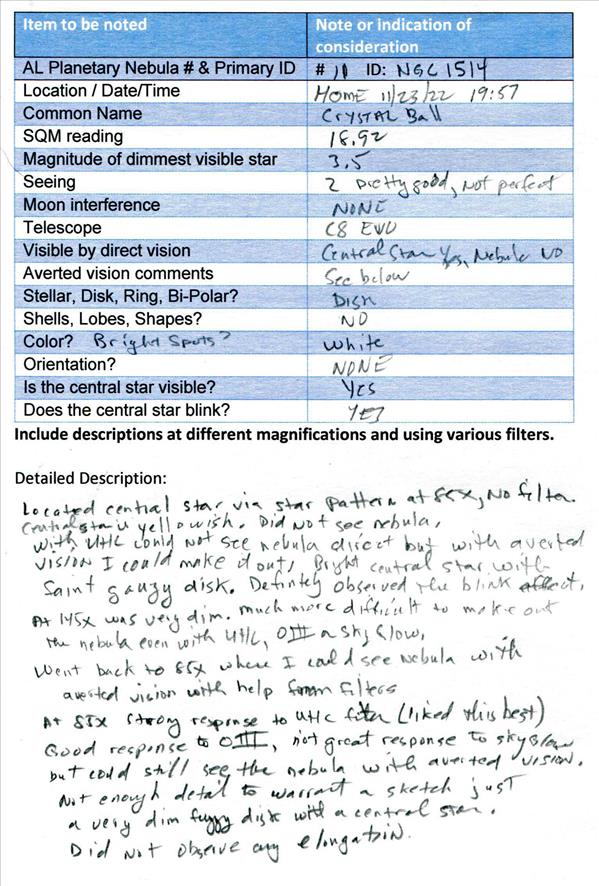 Item to be noted Note or indication of consideration
AL Planetary Nebula # & Primary ID # 11 ID: NGC 1514
Location / Date/Time HOME 11/23/22 19:57
Common Name CRYSTAL Ball
SQM reading 18.92
Magnitude of dimmest visible star 3.5
Seeing 2 Pretty good, Not perfect
Moon interference NONE
Telescope C8 EVO
Visible by direct vision Central Star Yes, Nebula NO
Averted vision comments See below
Stellar, Disk, Ring, Bi-Polar? Disk
Shells, Lobes, Shapes? NO
Color? Bright Spots? White
Orientation? NONE
Is the central star visible? Yes
Does the central star blink? YES
Include descriptions at different magnifications and using various filters.
Detailed Description:
Located central star via star pattern at 85X, No filter.
Central star is yellowish. Did not see nebula.
With UHC could not see nebula direct but with averted
vision I could make it out, Bright central star with
faint gauzy disk. Defintely observed the blink affect.
At 145x was very dim. much more difficult to make out
the nebula even with UHC, OIII or Sky Glow,
Went back to 85x where I could see Nebula with
averted vision with help from filters
At 85X strong response to UHC filter (liked this best)
Good response to OIII, not great response to skyglow
but could still see the nebula with averted vision.
Not enough detail to warrant a sketch just
a very dim fuzzy disk with a central star.
Did not observe any elongation.